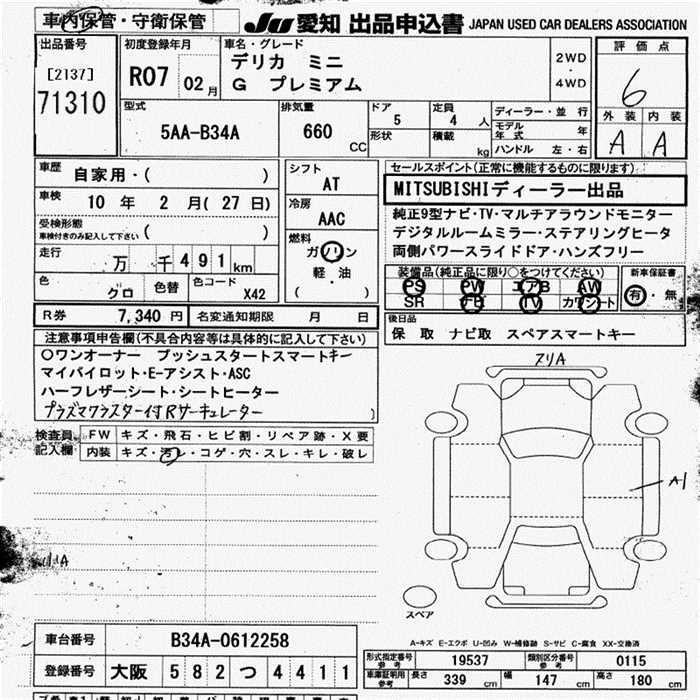 車内保管・守衛保管
JU 愛知 出品申込書 JAPAN USED CAR DEALERS ASSOCIATION
出品番号
[2137]
71310
初度登録年月
R07 02 月
車名・グレード
デリカ ミニ
G プレミアム
2WD
・
4WD
評価点
6
外装 内装
A A
型式
5AA-B34A
排気量
660
CC
ドア
5
形状
定員
4 人
積載
kg
ディーラー・並行
モデル年式 年
ハンドル 左・右
車歴
自家用・( )
車検
10 年 2 月( 27 日)
受検形態
車検付きのみ記入して下さい ( )
走行
万 千 491 km
色
クロ
色替
色コード
X42
シフト
AT
冷房
AAC
燃料
ガソリン
軽・油
( )
セールスポイント(正常に機能するものに限ります)
MITSUBISHIディーラー出品
純正9型ナビ・TV・マルチアラウンドモニター
デジタルルームミラー・ステアリングヒータ
両側パワースライドドア・ハンズフリー
装備品(純正品に限り○をつけてください)
PS PW エアB AW
SR TV カワシート
新車保証書
有・無
R券 7,340 円 名変通知期限 月 日
後日品
保 取 ナビ取 スペアスマートキー
注意事項申告欄(不具合内容等は具体的に記入して下さい)
○ワンオーナー プッシュスタートスマートキー
マイパイロット・E-アシスト・ASC
ハーフレザーシート・シートヒーター
プラズマクラスター付Rサーキュレーター
検査員記入欄
FW キズ・飛石・ヒビ割・リペア跡・X要
内装 キズ・汚レ・コゲ・穴・スレ・キレ・破レ
ヌリA
A1
スペア
A-キズ E-エクボ U-凹み W-補修跡 S-サビ C-腐食 XX-交換済
車台番号 B34A-0612258
登録番号 大阪 582 つ 4411
形式指定番号 参考 19537
類別区分番号 参考 0115
車庫証明用 参考
長さ 339 cm
幅 147 cm
高さ 180 cm